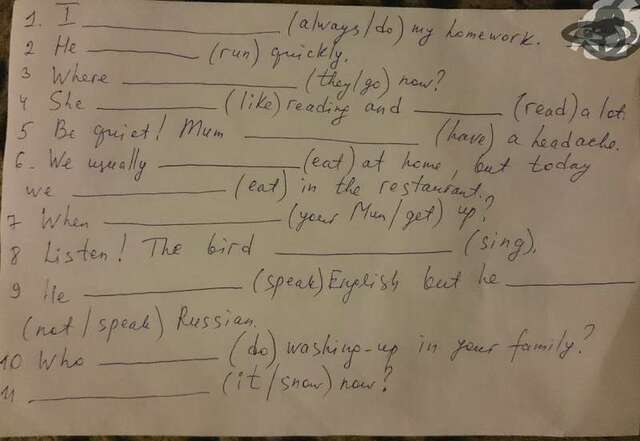 1. I ____________ (always/do) my homework.
2 He ____________ (run) quickly.
3 Where ____________ (they/go) now?
4 She ____________ (like) reading and ____________ (read) a lot.
5 Be quiet! Mum ____________ (have) a headache.
6. We usually ____________ (eat) at home, but today
we ____________ (eat) in the restaurant.
7 When ____________ (your Mum/get) up?
8 Listen! The bird ____________ (sing).
9 He ____________ (speak) English but he ____________
(not/speak) Russian.
10 Who ____________ (do) washing-up in your family?
11 ____________ (it/snow) now?